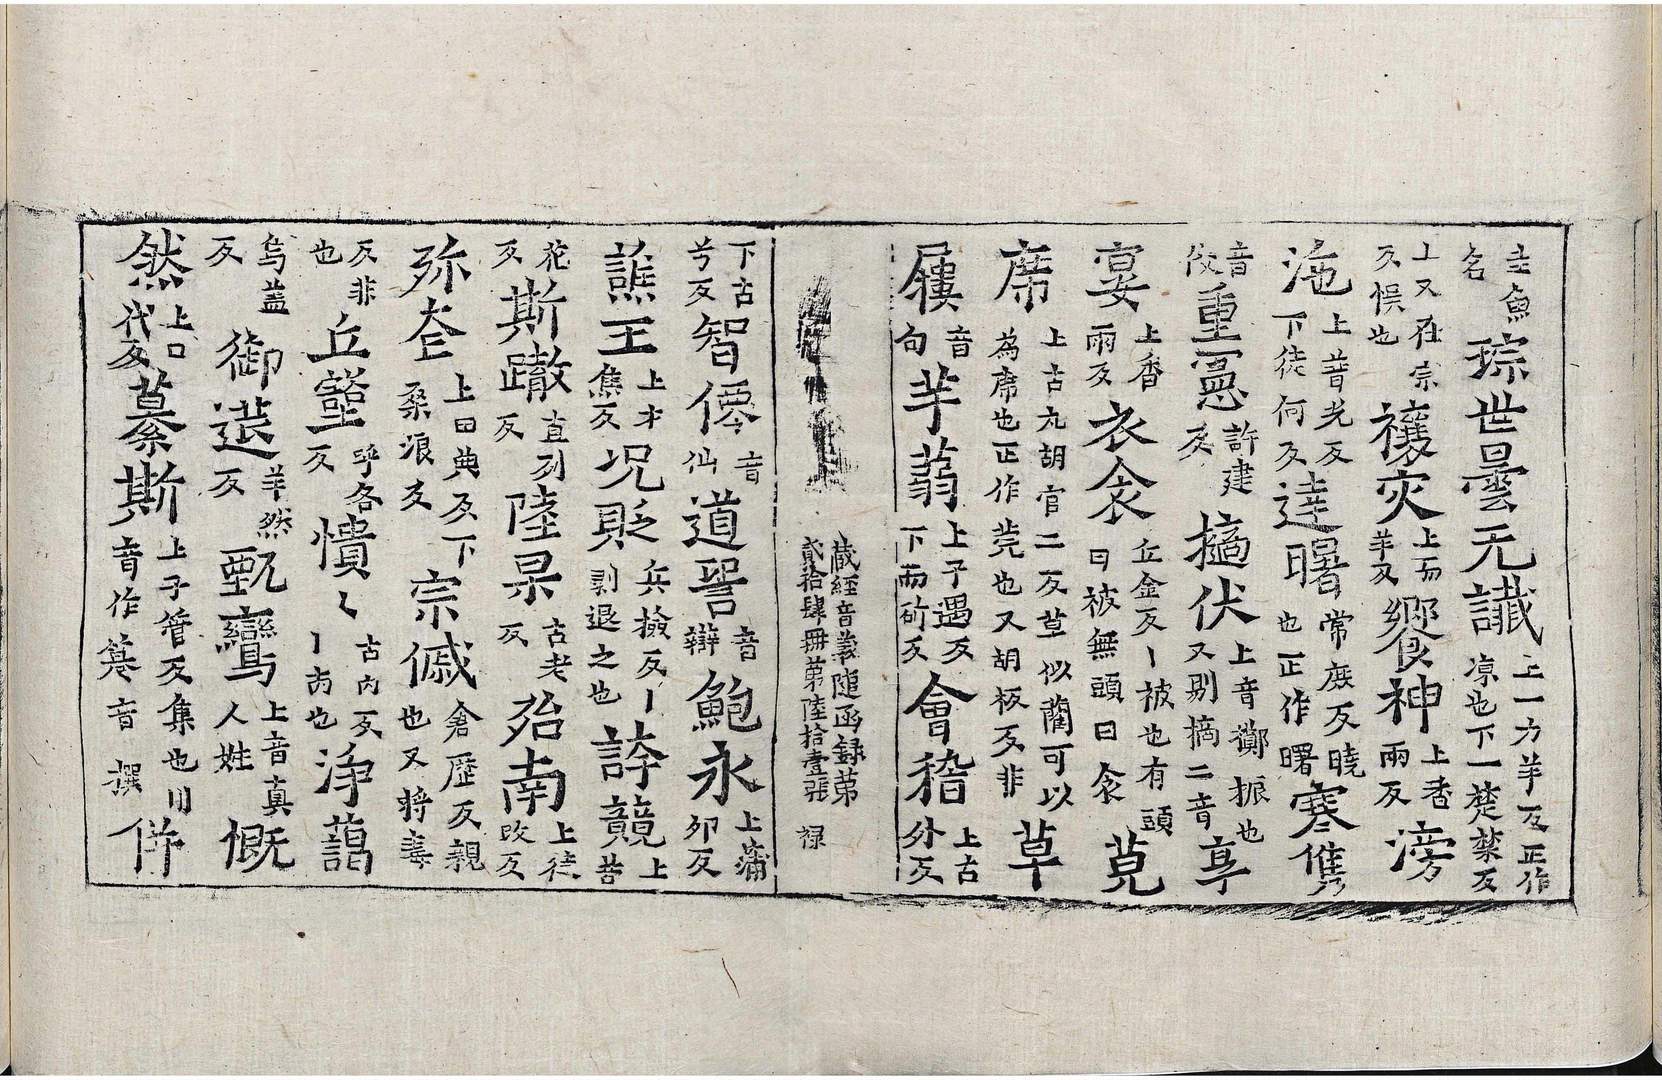 主魚名琮世曇无讖上一方羊反正作凉也下一楚禁反
上又在宗反悮也禳灾上而羊反饗神上香兩反滂
沲上普光反下徒何反達曙常庶反曉也正作曙寒儁
音俊重㥜許建反擿伏上音擲振也又剔摘二音享
宴上香兩反衣衾丘金反丨被也有頭曰被無頭曰衾莧
席上古丸胡官二反草似藺可以為席也正作莞也又胡板反非草
屨音句芋蒻上于遇反下而斫反會稽上古外反
藏經音義隨函録第貳拾肆冊第陸拾壹張 禄
下古兮反智僊音仙道䛒音辯鮑永上蒲卯反
譙王上才焦反况貶兵撿反丨剥退之也誇競上苦
花反斯蹾直列反陸杲古老反殆南上徒改反
弥夲上曰典反下桑浪反宗傶倉歷反親也又將毒
反非也丘壑呼各反憒〻古内反丨丙也浄藹
烏盖反御選羊然反甄鸞上音真人姓慨
然上口代反纂斯上子管反集也川音作䉵音撰併